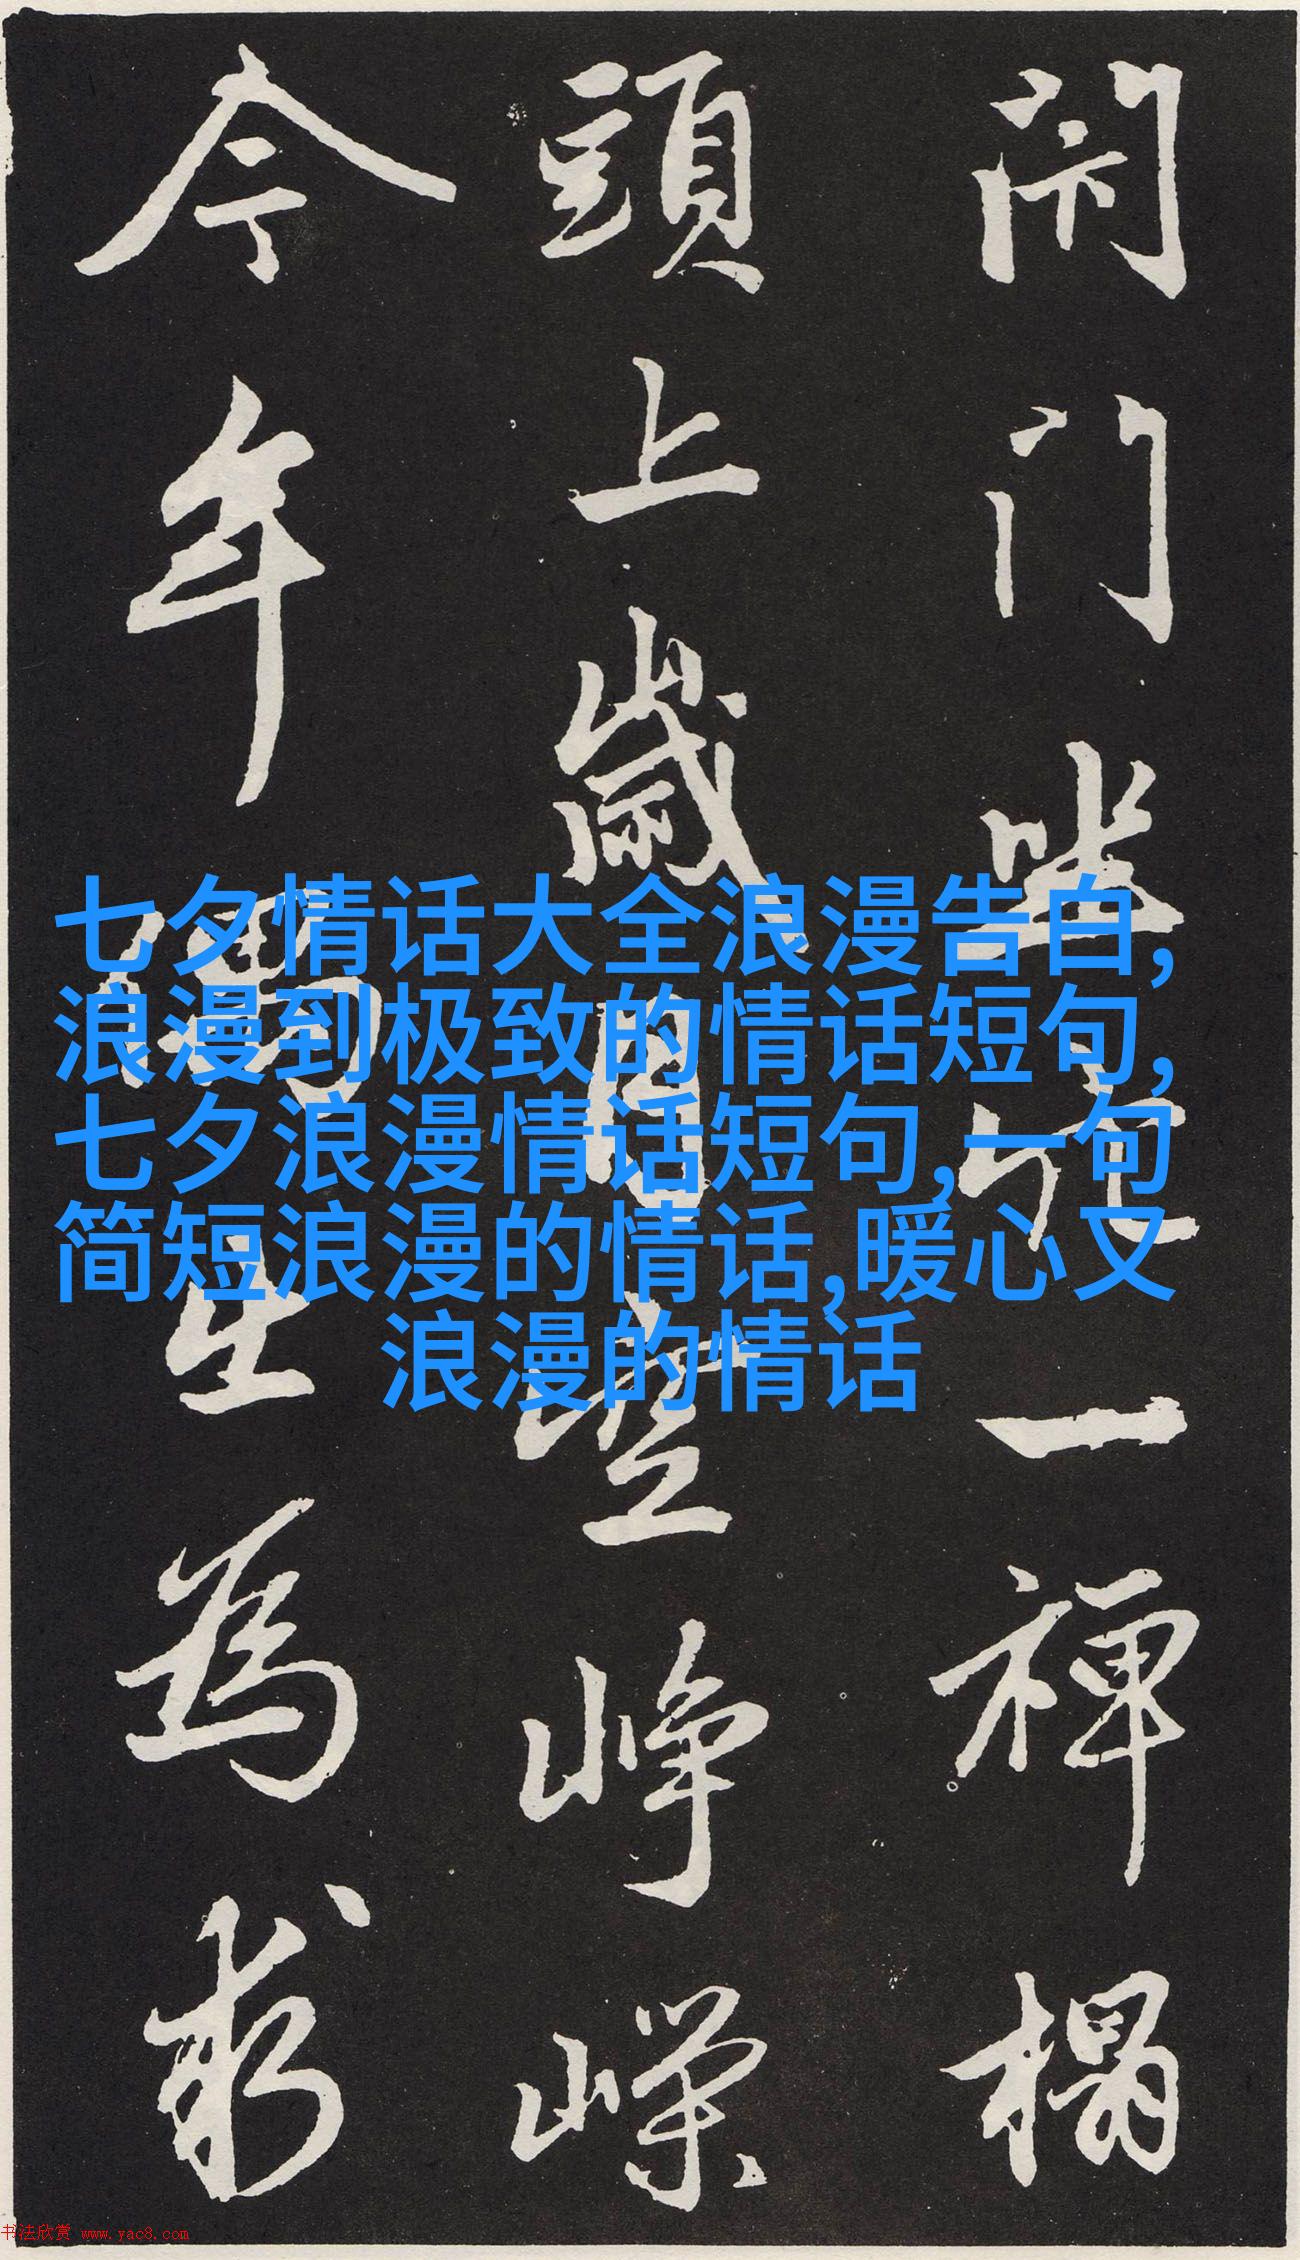 閇门坐穴一禅榻
頭上歲月空峥嵘
今年偶出為求
七夕情话大全浪漫告白,
浪漫到极致的情话短句,
七夕浪漫情话短句,一句
简短浪漫的情话,暖心又
浪漫的情话
书法欣赏 www.yac8.com